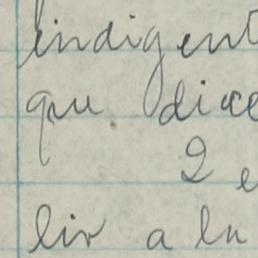 indigent
que dice
2 e
liv a la